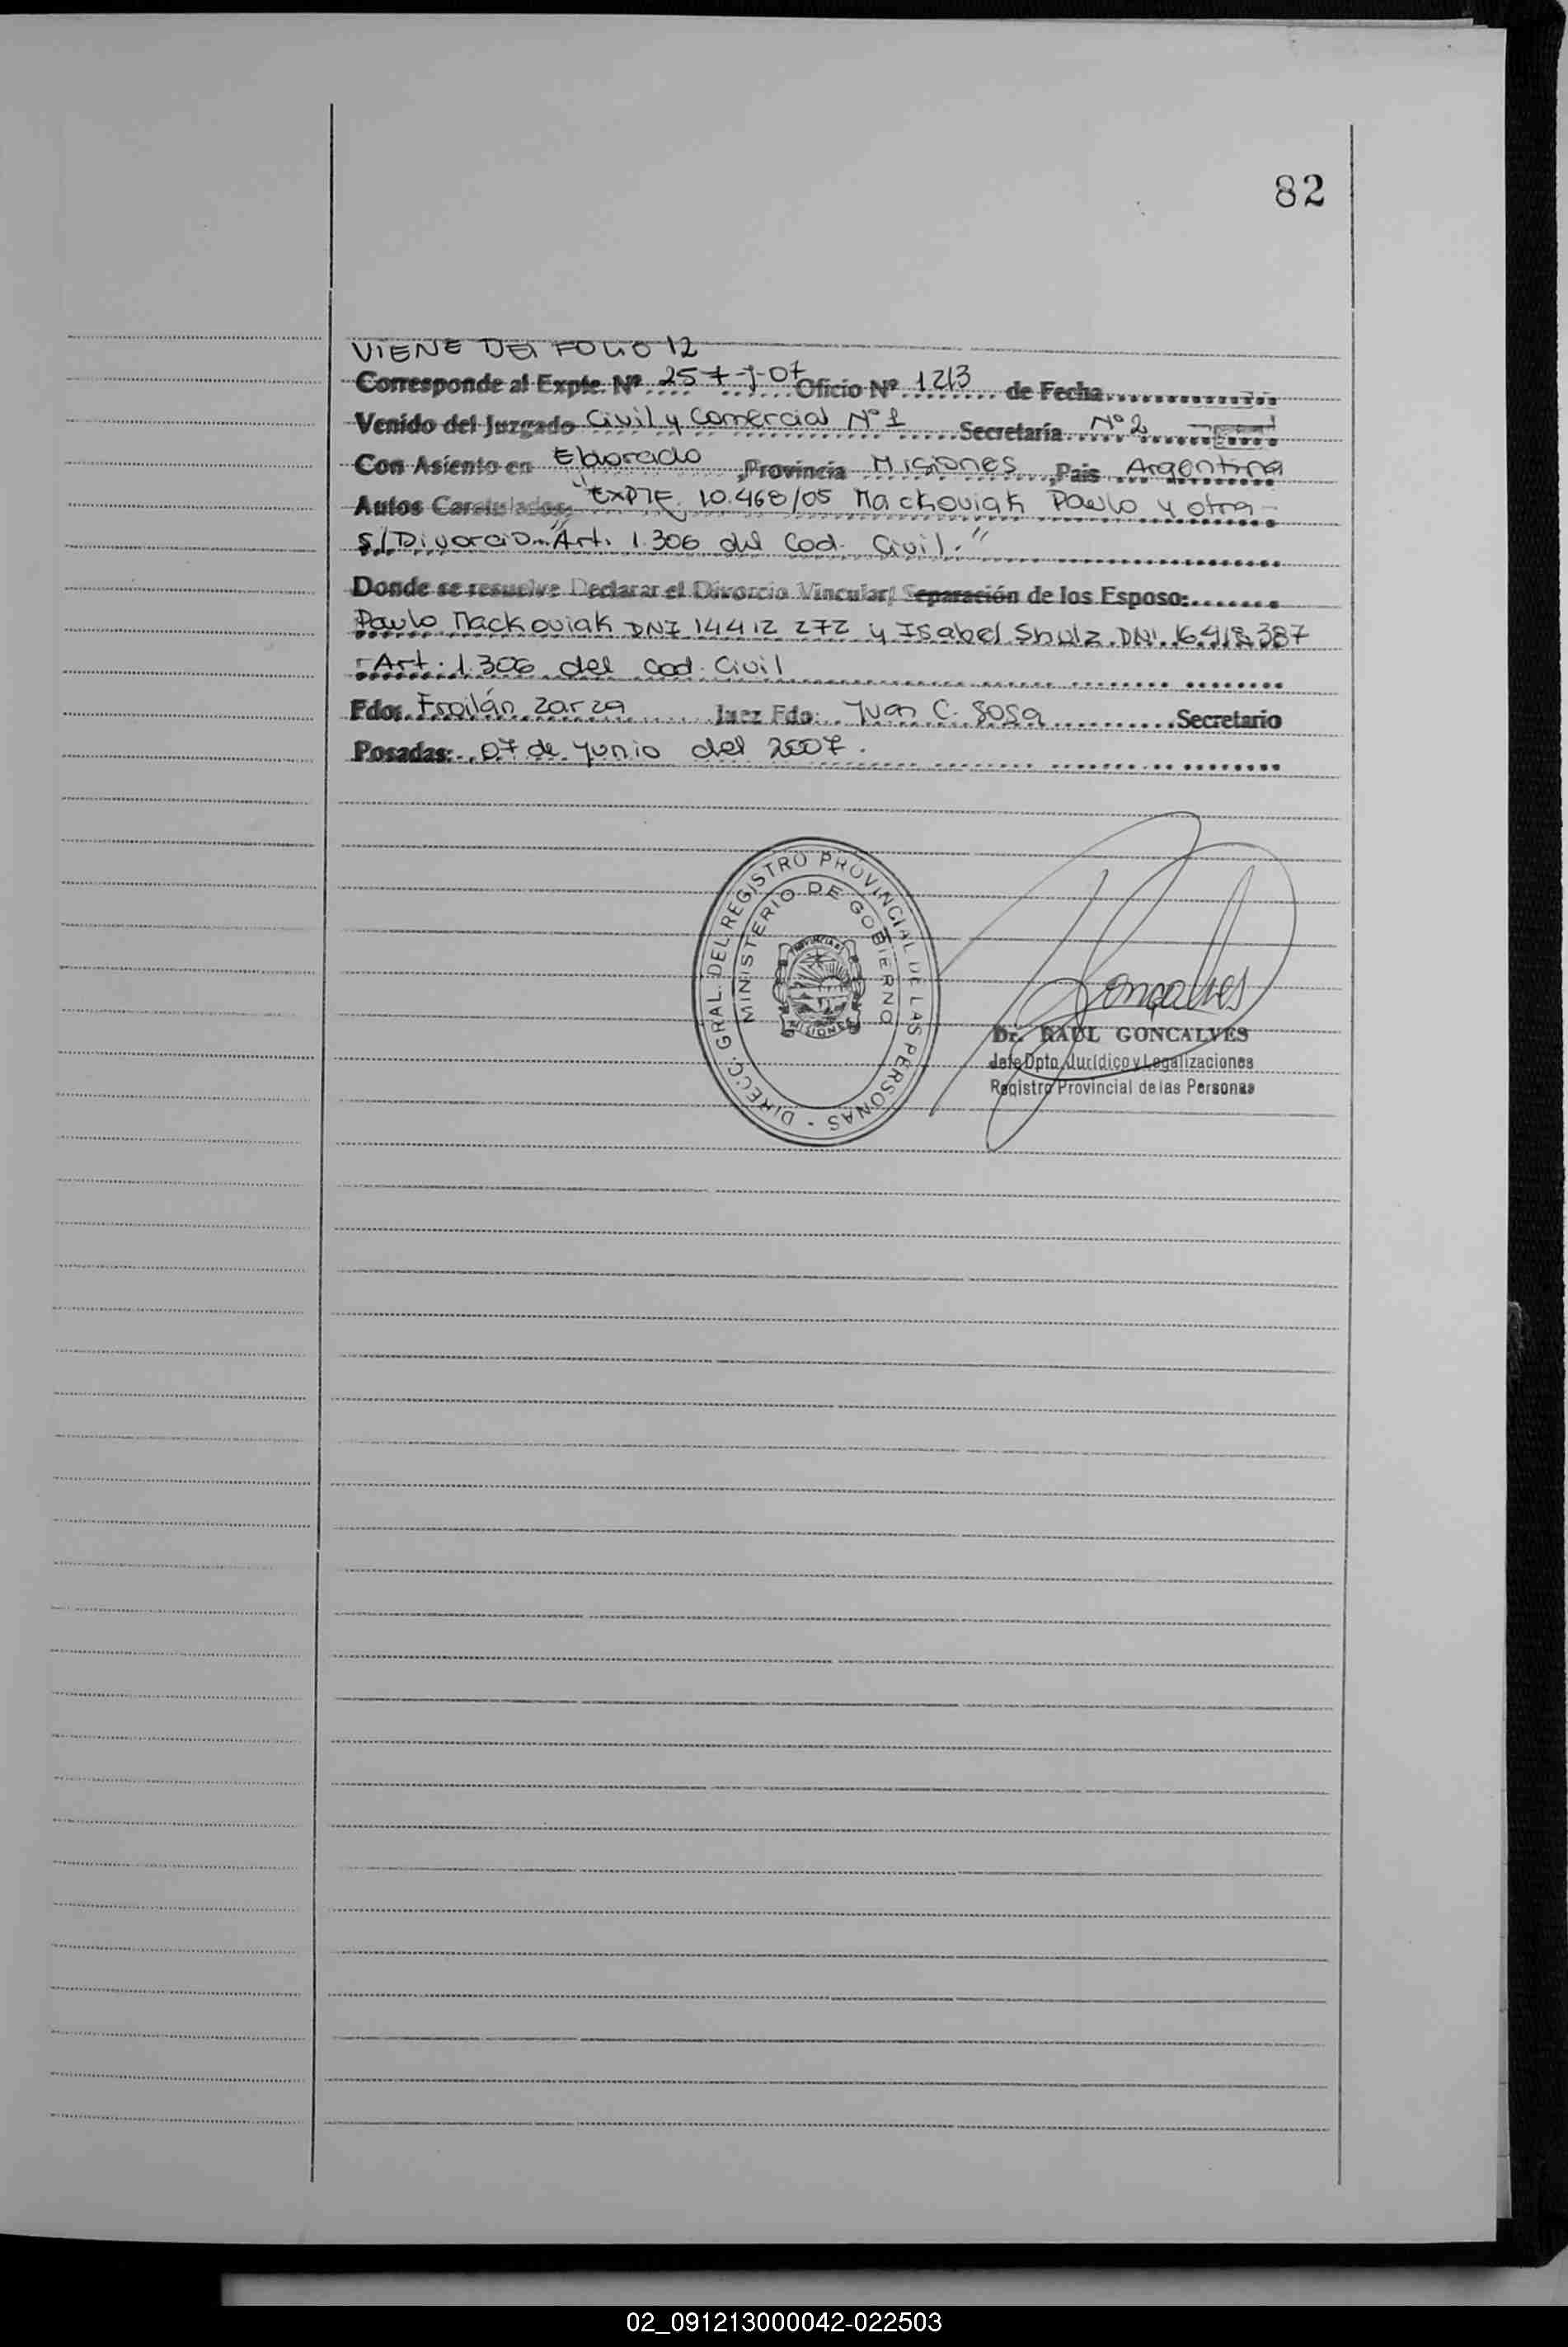 82
VIENE DEL FOLIO 12
Corresponde al Expte. Nº 257-J-07 Oficio Nº 1213 de Fecha
Venido del Juzgado Civil y Comercial Nº 1 Secretaría Nº 2
Con Asiento en Eldorado, Provincia Misiones, Pais Argentina
Autos Caratulados: "EXPTE. 10.468/05 Mackoviak Paulo y otra-
S/Divorcio "Art. 1.306 del Cod. Civil."
Donde se resuelve Declarar el Divorcio Vincular/ Separación de los Esposo:
Paulo Mackoviak DNI 14412 272 y Isabel Shulz. DNI. 16.418.387
- Art. 1.306 del Cod. Civil
Fdo: Froilán Zarza Juez Fdo: Juan C. Sosa Secretario
Posadas: 07 de Junio del 2007.
DIRECC. GRAL. DEL REGISTRO PROVINCIAL DE LAS PERSONAS -
MINISTERIO DE GOBIERNO
PROVINCIA DE
MISIONES
Goncalves
Dr. RAUL GONCALVES
Jefe Dpto. Jurídico y Legalizaciones
Registro Provincial de las Personas
02_091213000042-022503